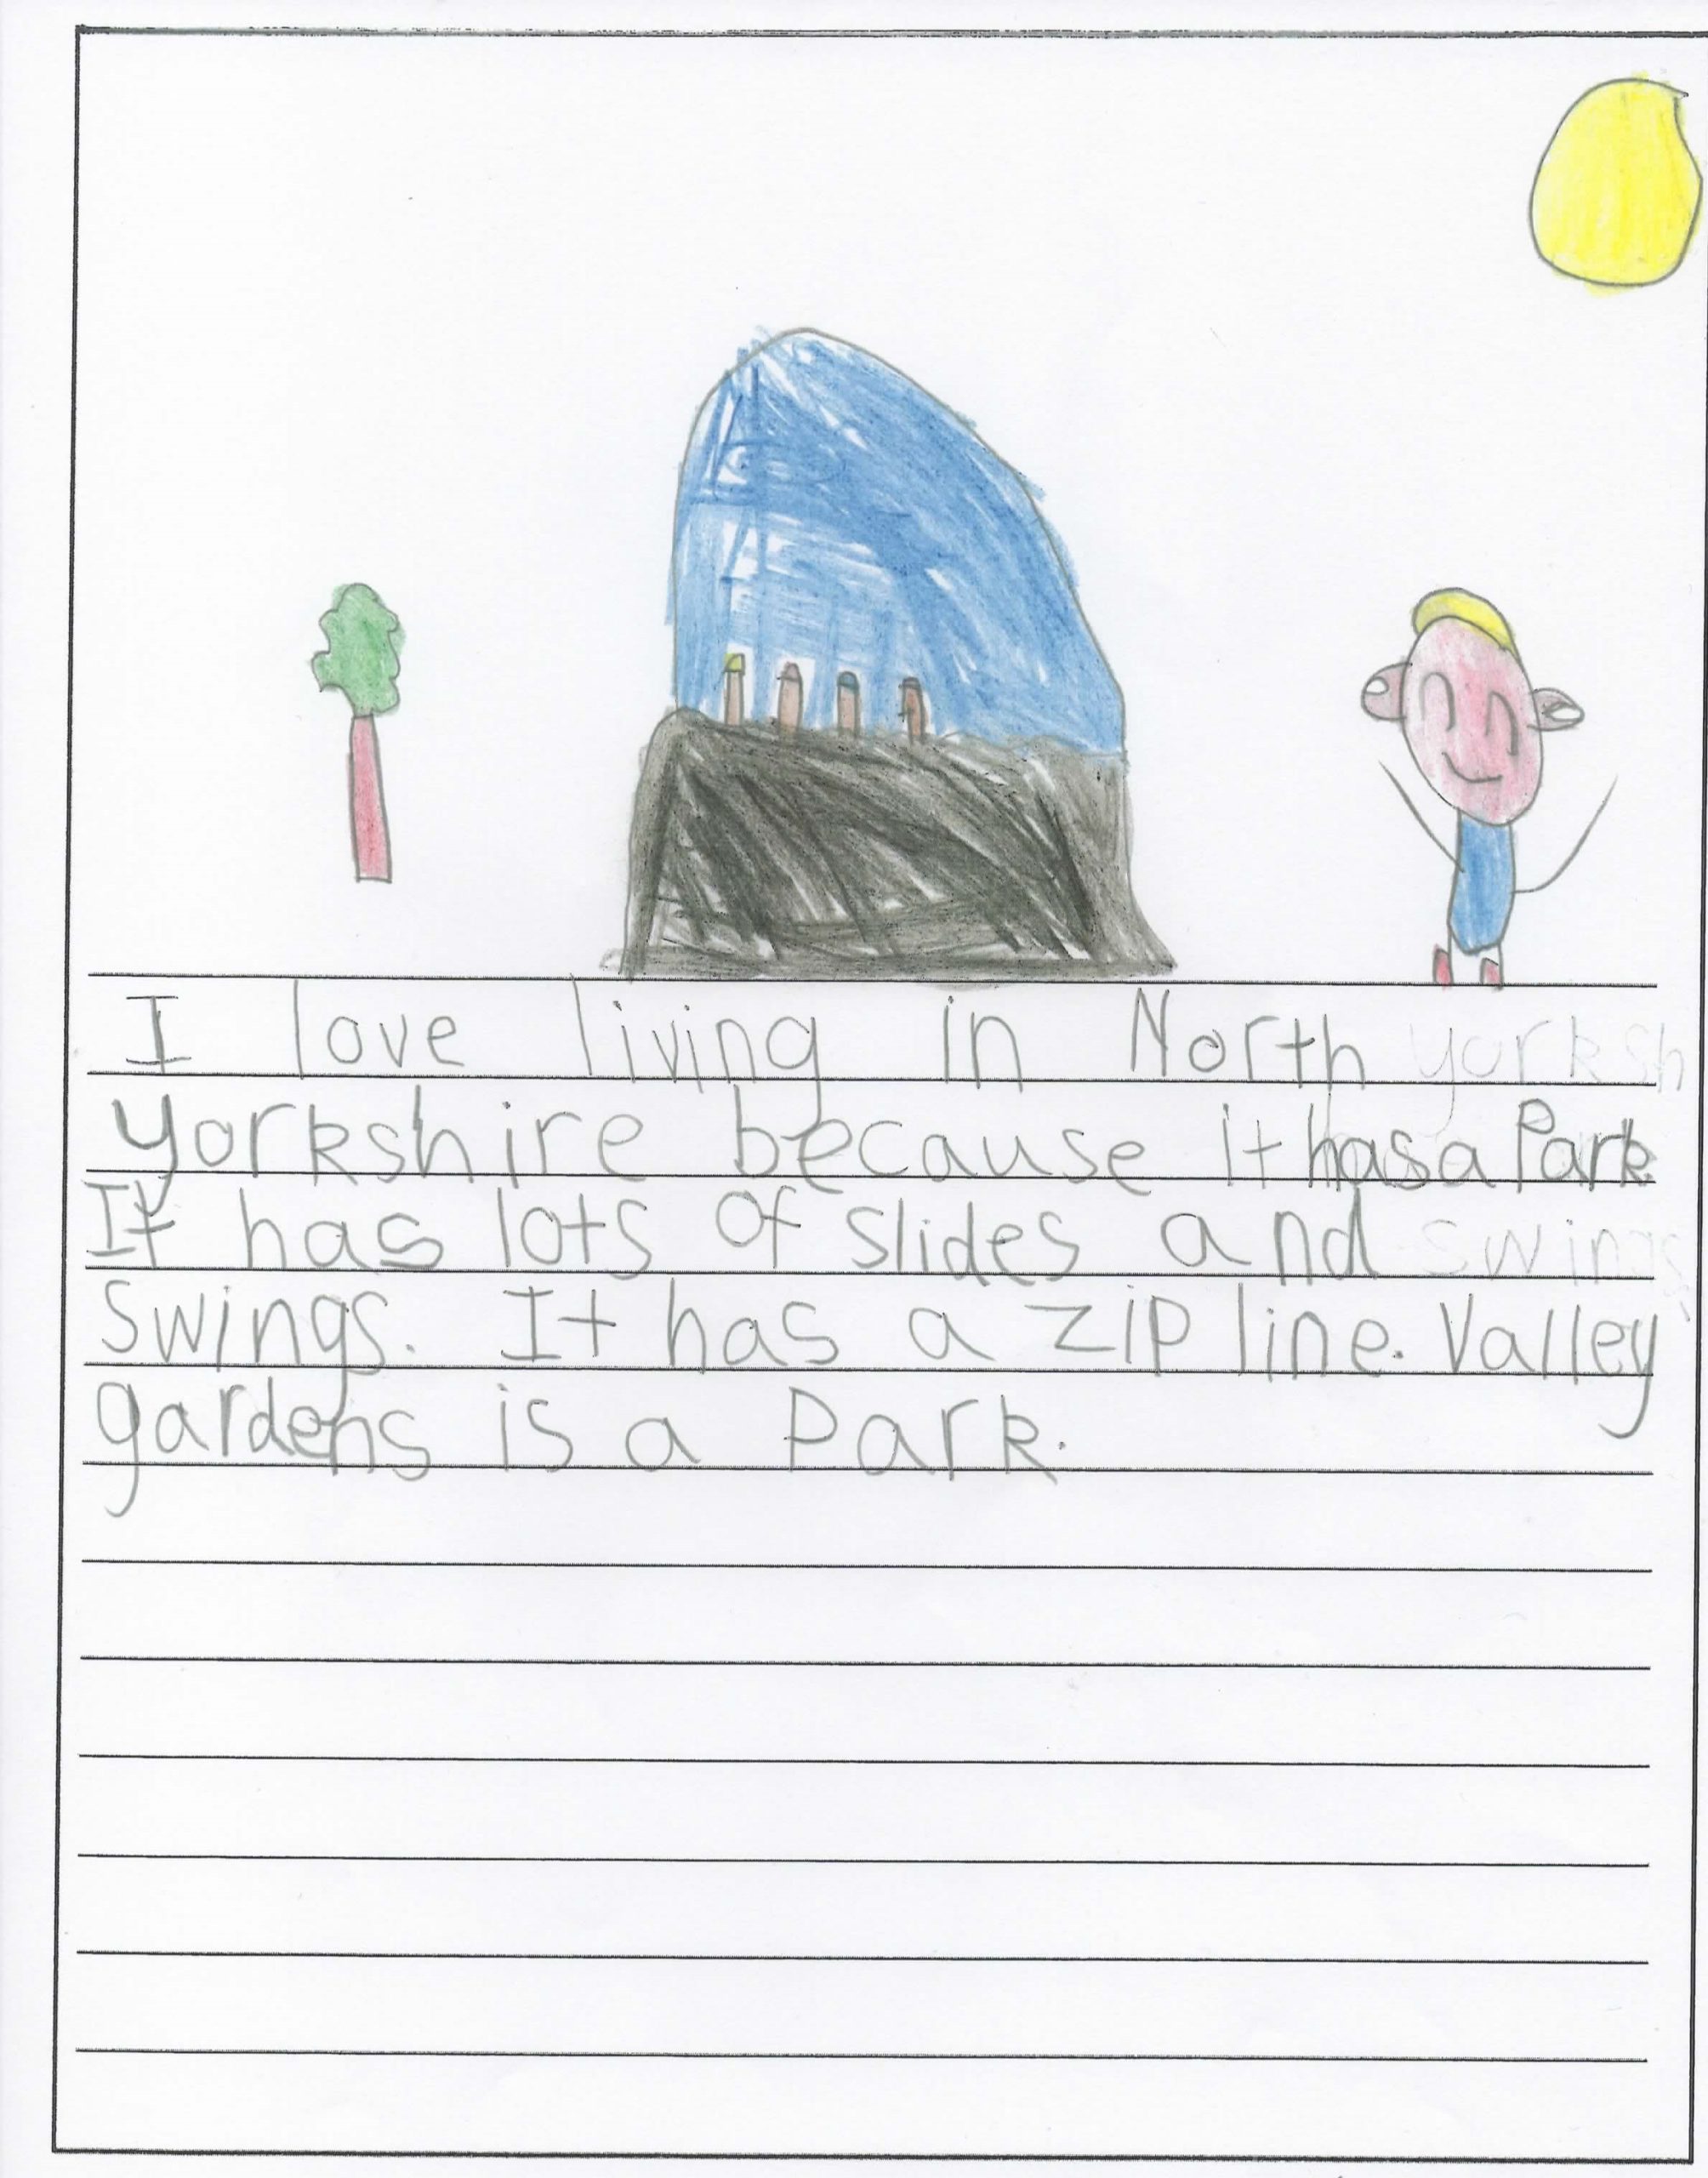 I love living in North yorksh
yorkshire because it has a Park.
It has lots of slides and swings
swings. It has a zip line. Valley
gardens is a Park.